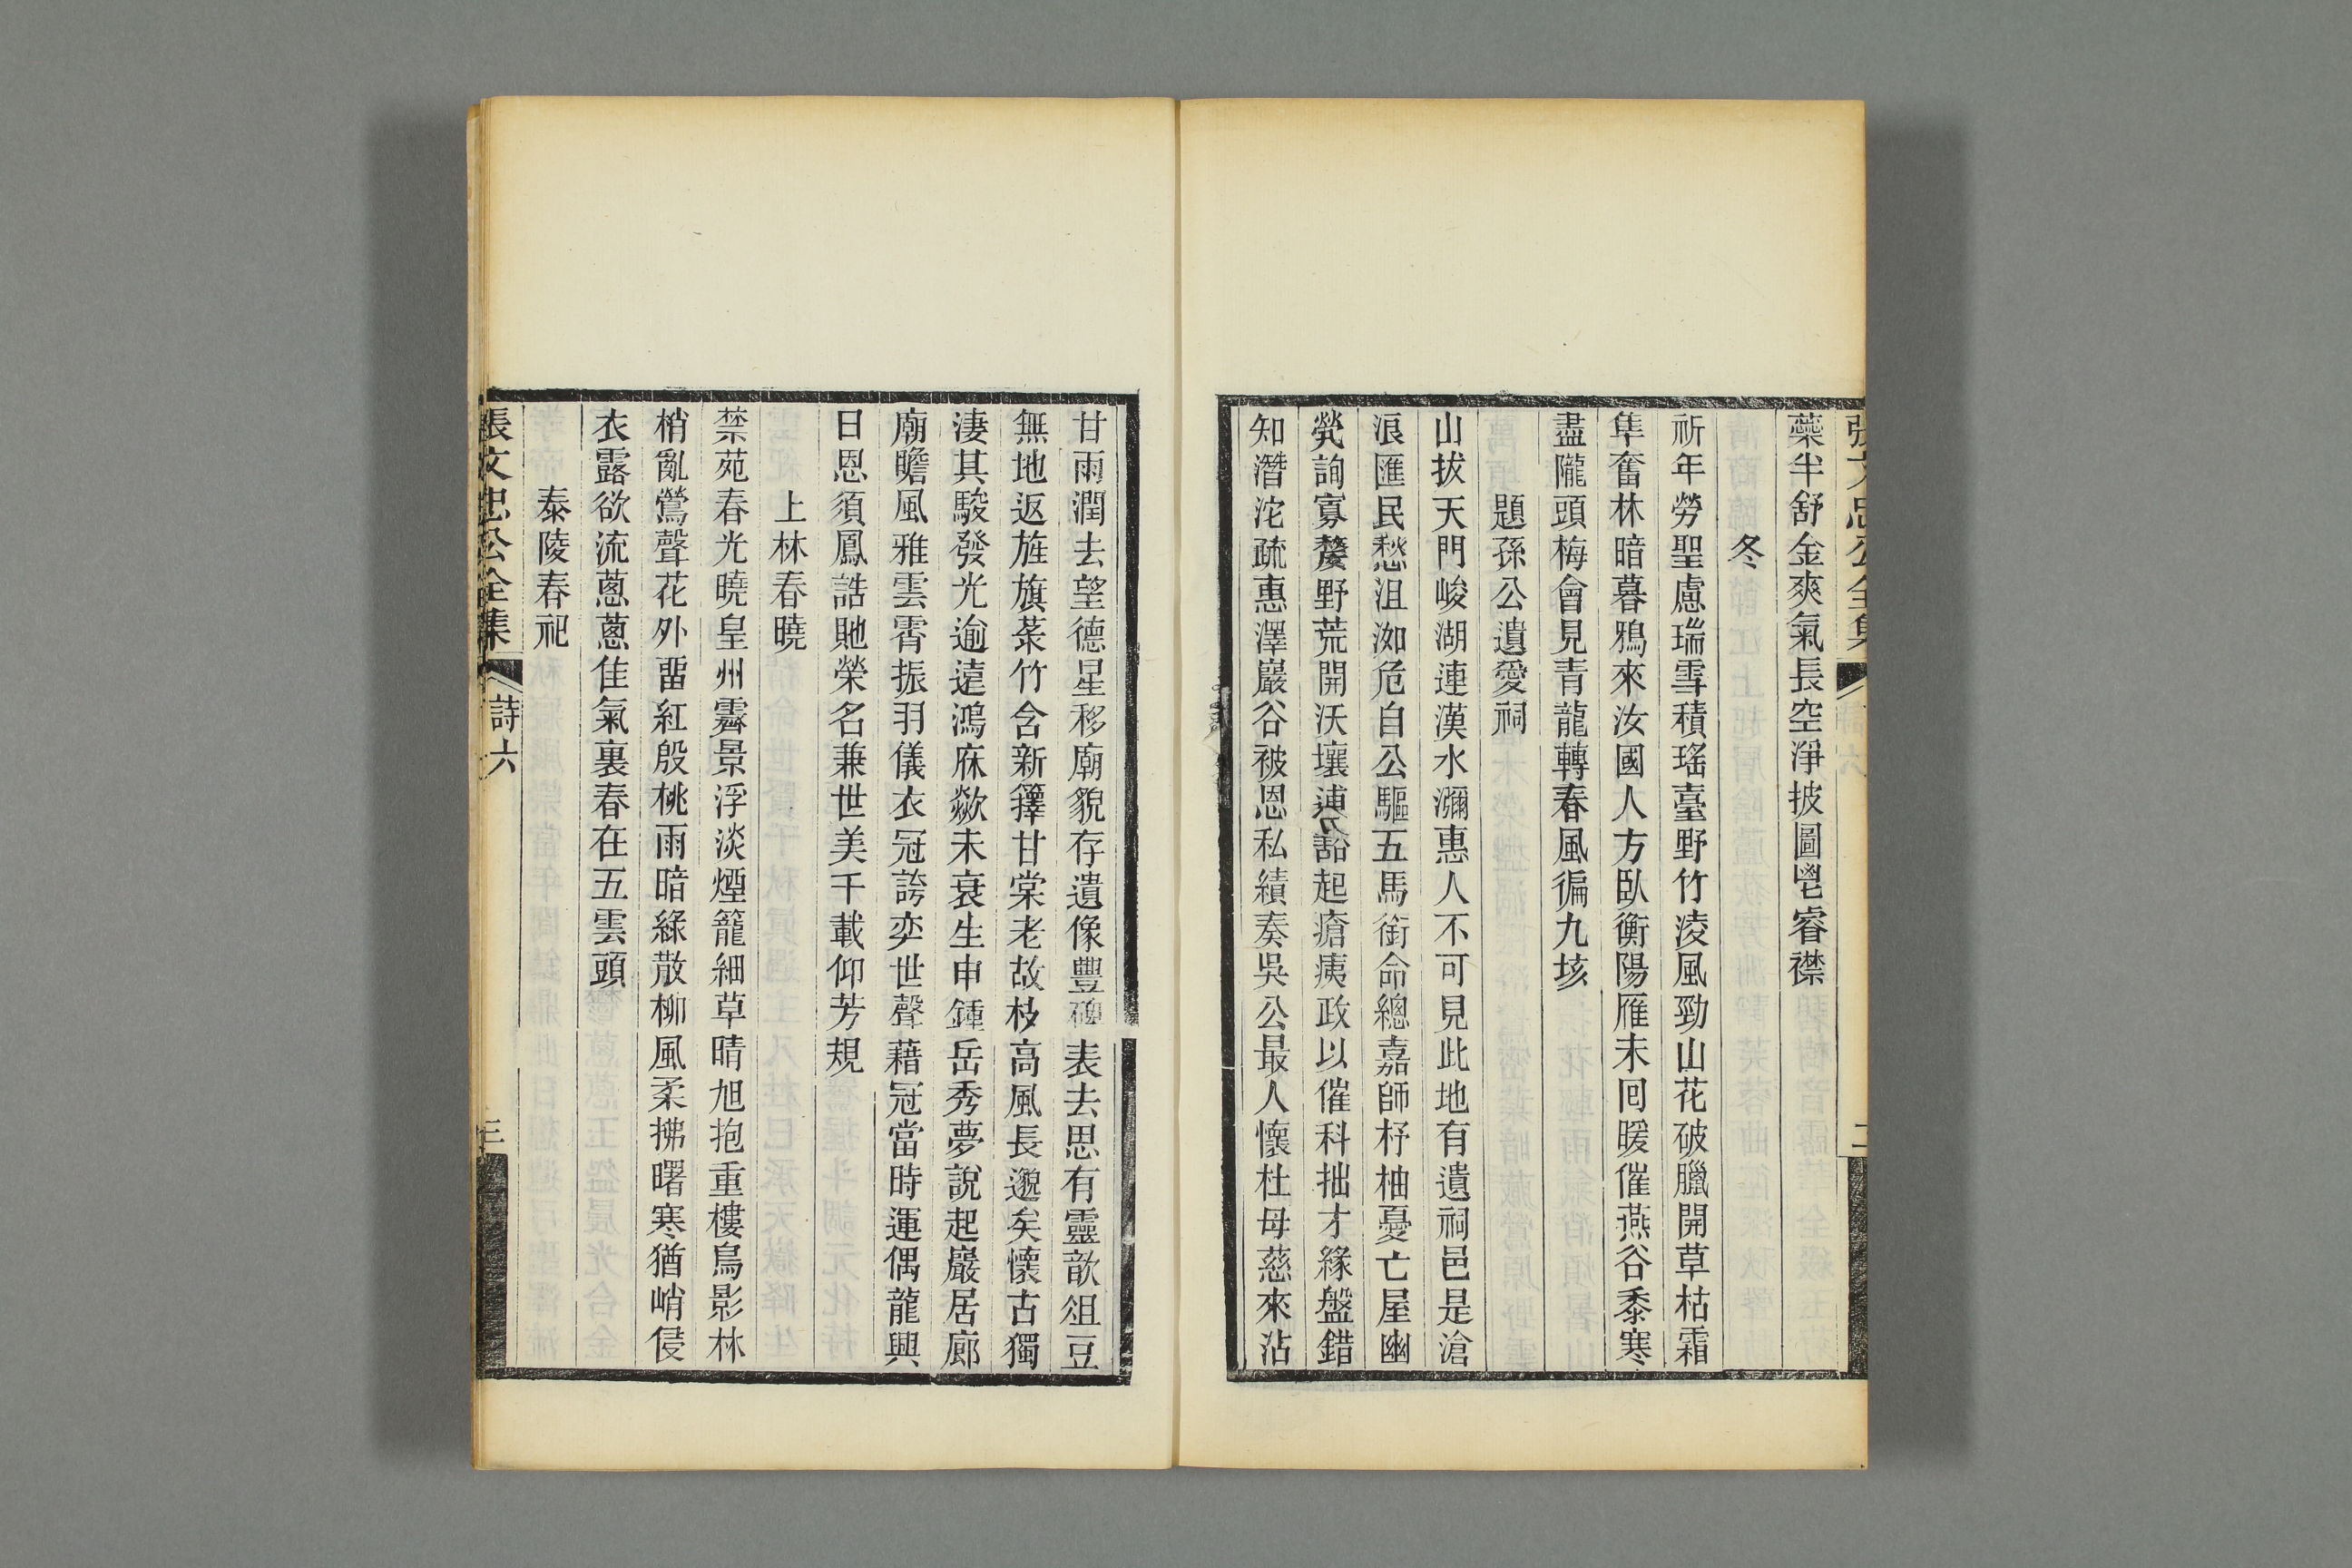 張文忠公全集
二
蘂半舒金爽氣長空淨披圖鬯睿襟
冬
祈年勞聖慮瑞雪積瑤臺野竹淩風勁山花破臘開草枯霜
隼奮林暗暮鴉來汝國人方臥衡陽雁未回暖催燕谷黍寒
盡隴頭梅會見青龍轉春風徧九垓
題孫公遺愛祠
山拔天門峻湖連漢水瀰惠人不可見此地有遺祠邑是滄
浪匯民愁沮洳危自公驅五馬銜命總嘉師杼柚憂亡屋幽
煢詢寡嫠野荒開沃壤逋豁起瘡痍政以催科拙才緣盤錯
知濳沱疏惠澤巖谷被恩私績奏吳公最人懷杜母慈來沾
甘雨潤去望德星移廟貌存遺像豐碑表去思有靈歆俎豆
無地返旌旗菉竹含新籜甘棠老故枝高風長邈矣懷古獨
淒其駿發光逾遠鴻庥歘未衰生申鍾岳秀夢說起巖居廊
廟瞻風雅雲霄振羽儀衣冠誇奕世聲藉冠當時運偶龍興
日恩須鳳誥貤榮名兼世美千載仰芳規
上林春曉
禁苑春光曉皇州霽景浮淡煙籠細草晴旭抱重樓鳥影林
梢亂鶯聲花外畱紅殷桃雨暗綠散柳風柔拂曙寒猶峭侵
衣露欲流蔥蔥佳氣裏春在五雲頭
泰陵春祀
張文忠公全集
詩六
三